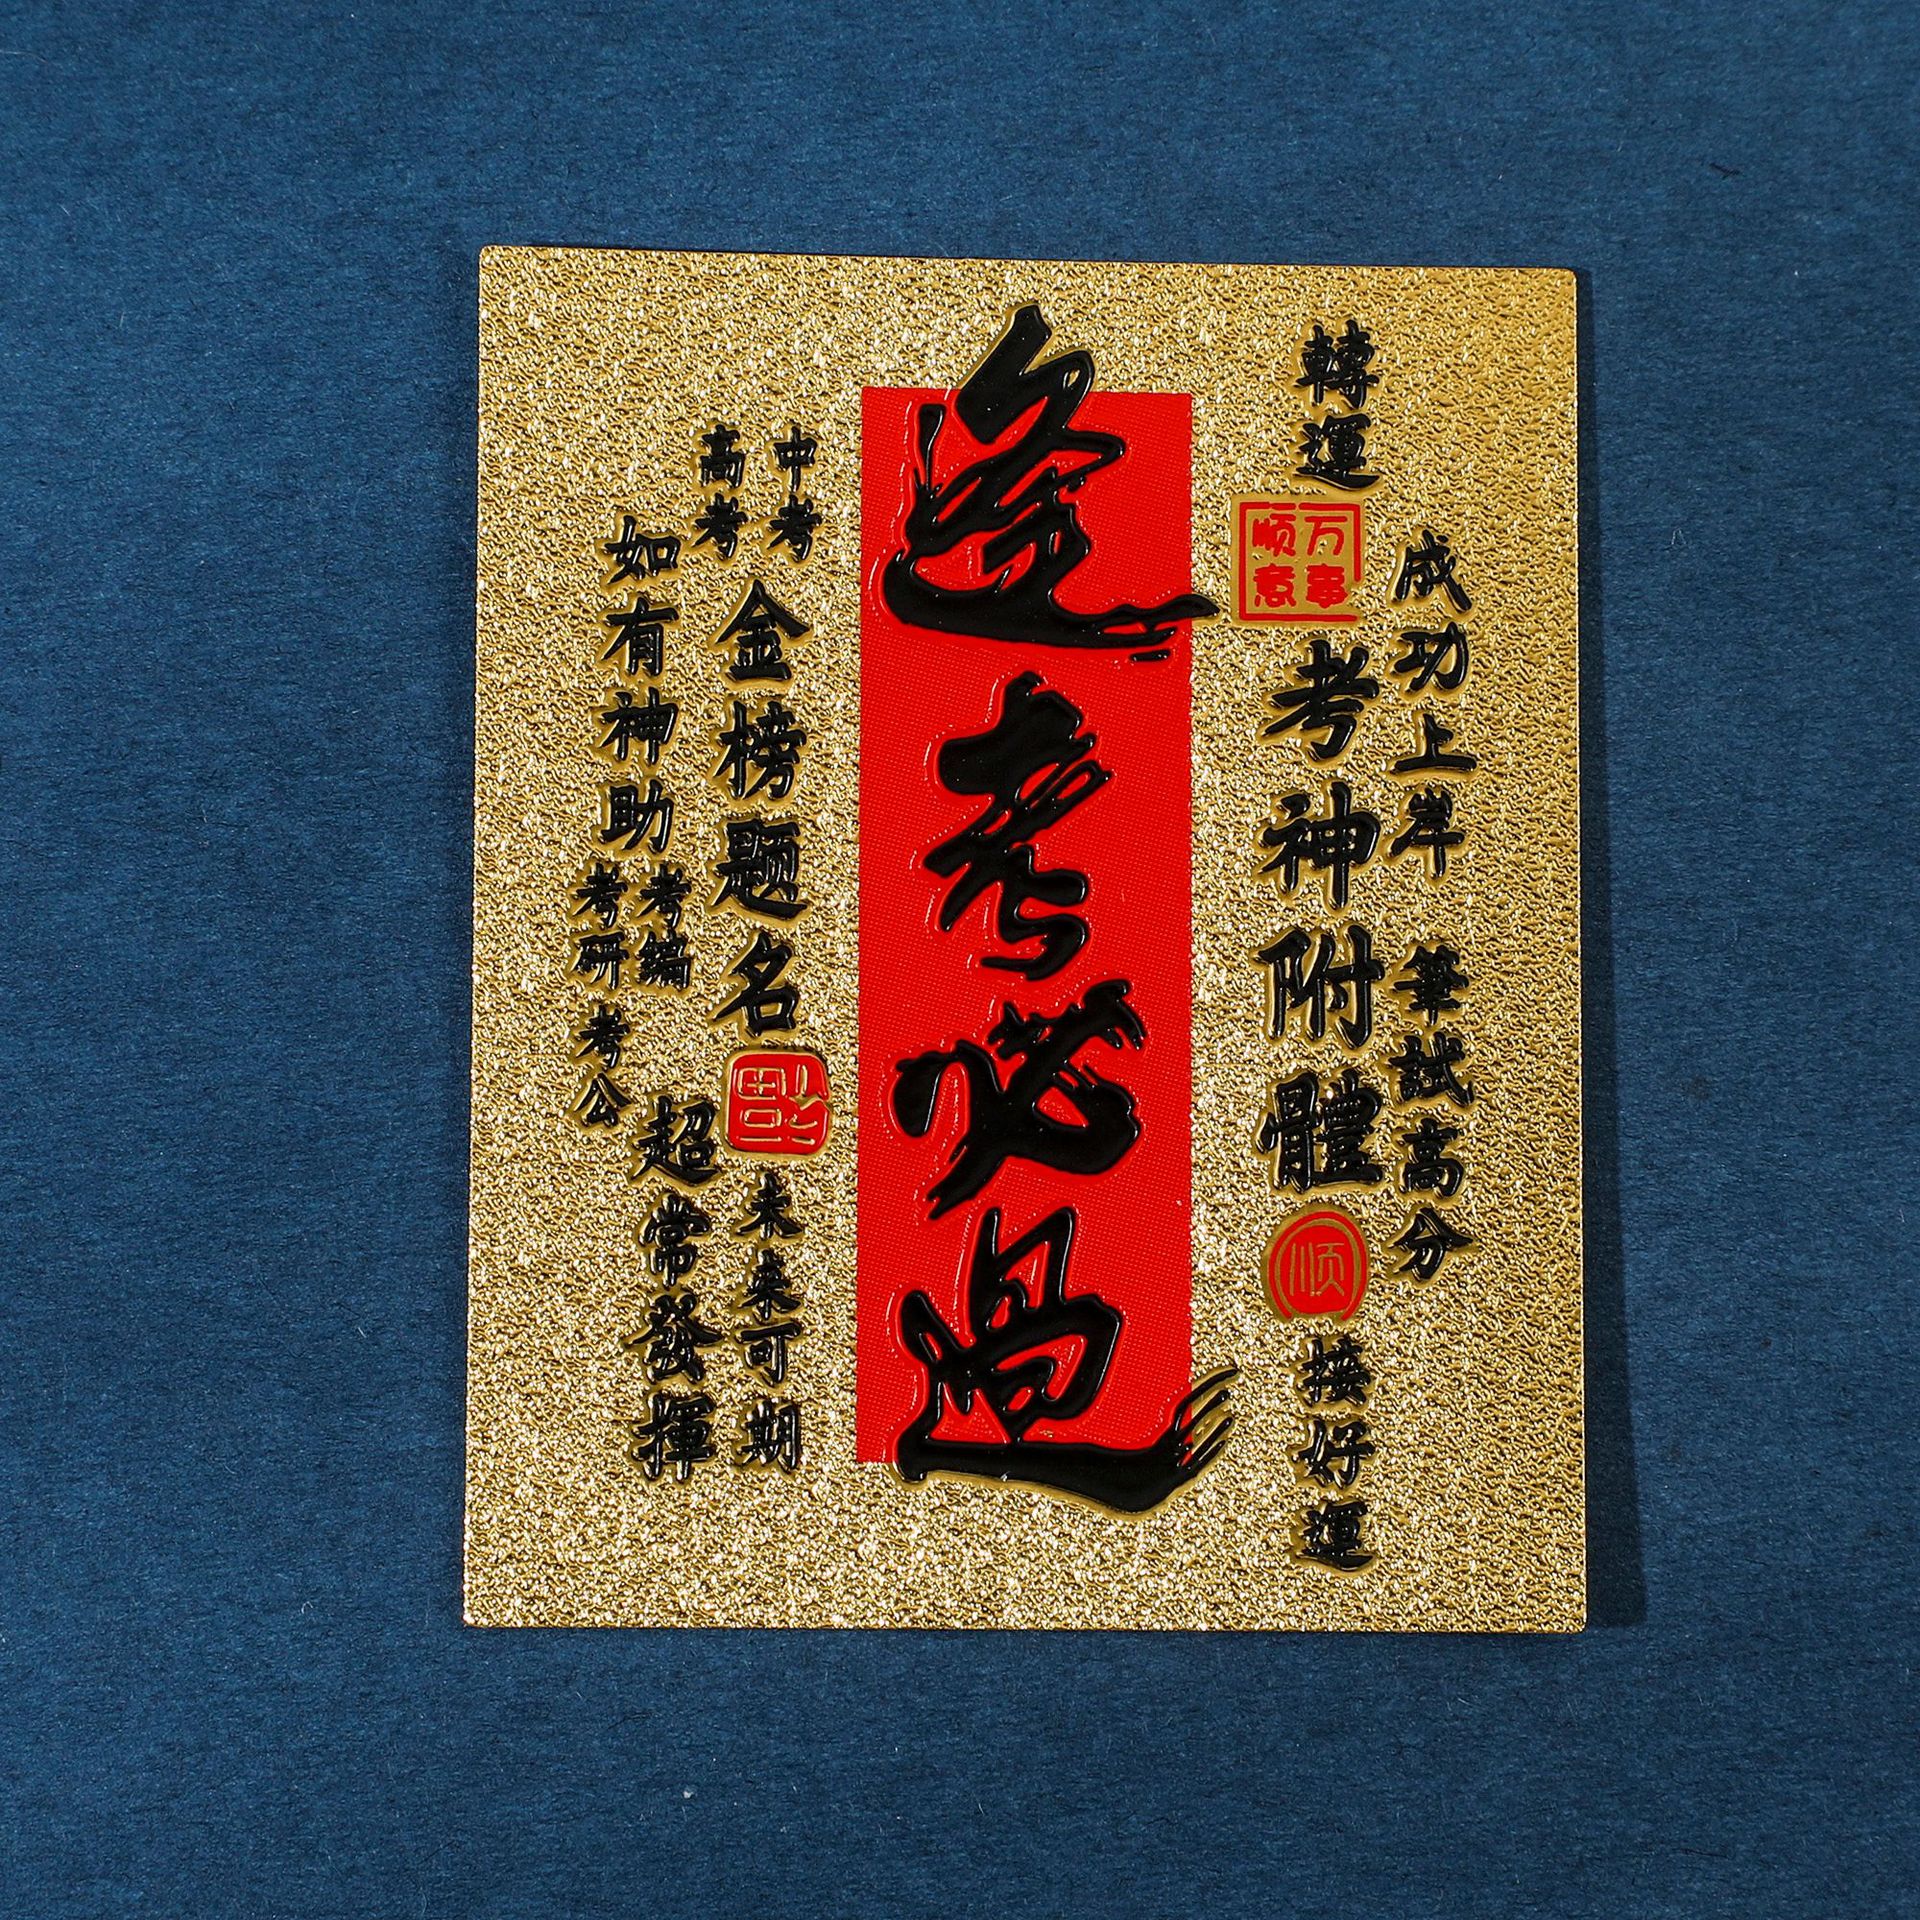 成功上岸
筆試高分
轉運
万事
顺意
考神附體
顺
接好運
逢考必過
中考
高考
金榜题名
福
未来可期
如有神助
考編
考研
考公
超常發揮